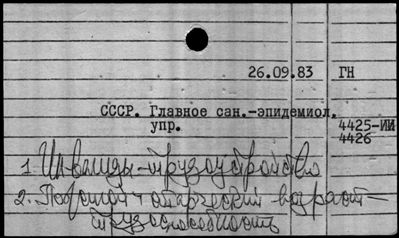 26.09.83 ГН
СССР. Главное сан.-эпидемиол.
упр. 4425-ИИ
4426
1 Инвалиды-трудоустройство
2. Пожилой и старческий возраст-
трудоспособность